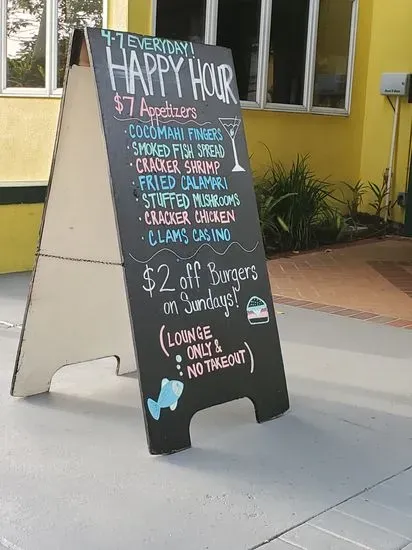 4-7 EVERYDAY!
HAPPY HOUR
$7 Appetizers
• COCOMAHI FINGERS
• SMOKED FISH SPREAD
• CRACKER SHRIMP
• FRIED CALAMARI
• STUFFED MUSHROOMS
• CRACKER CHICKEN
• CLAMS CASINO
$2 off Burgers
on Sundays!
(LOUNGE
ONLY &
NO TAKEOUT)